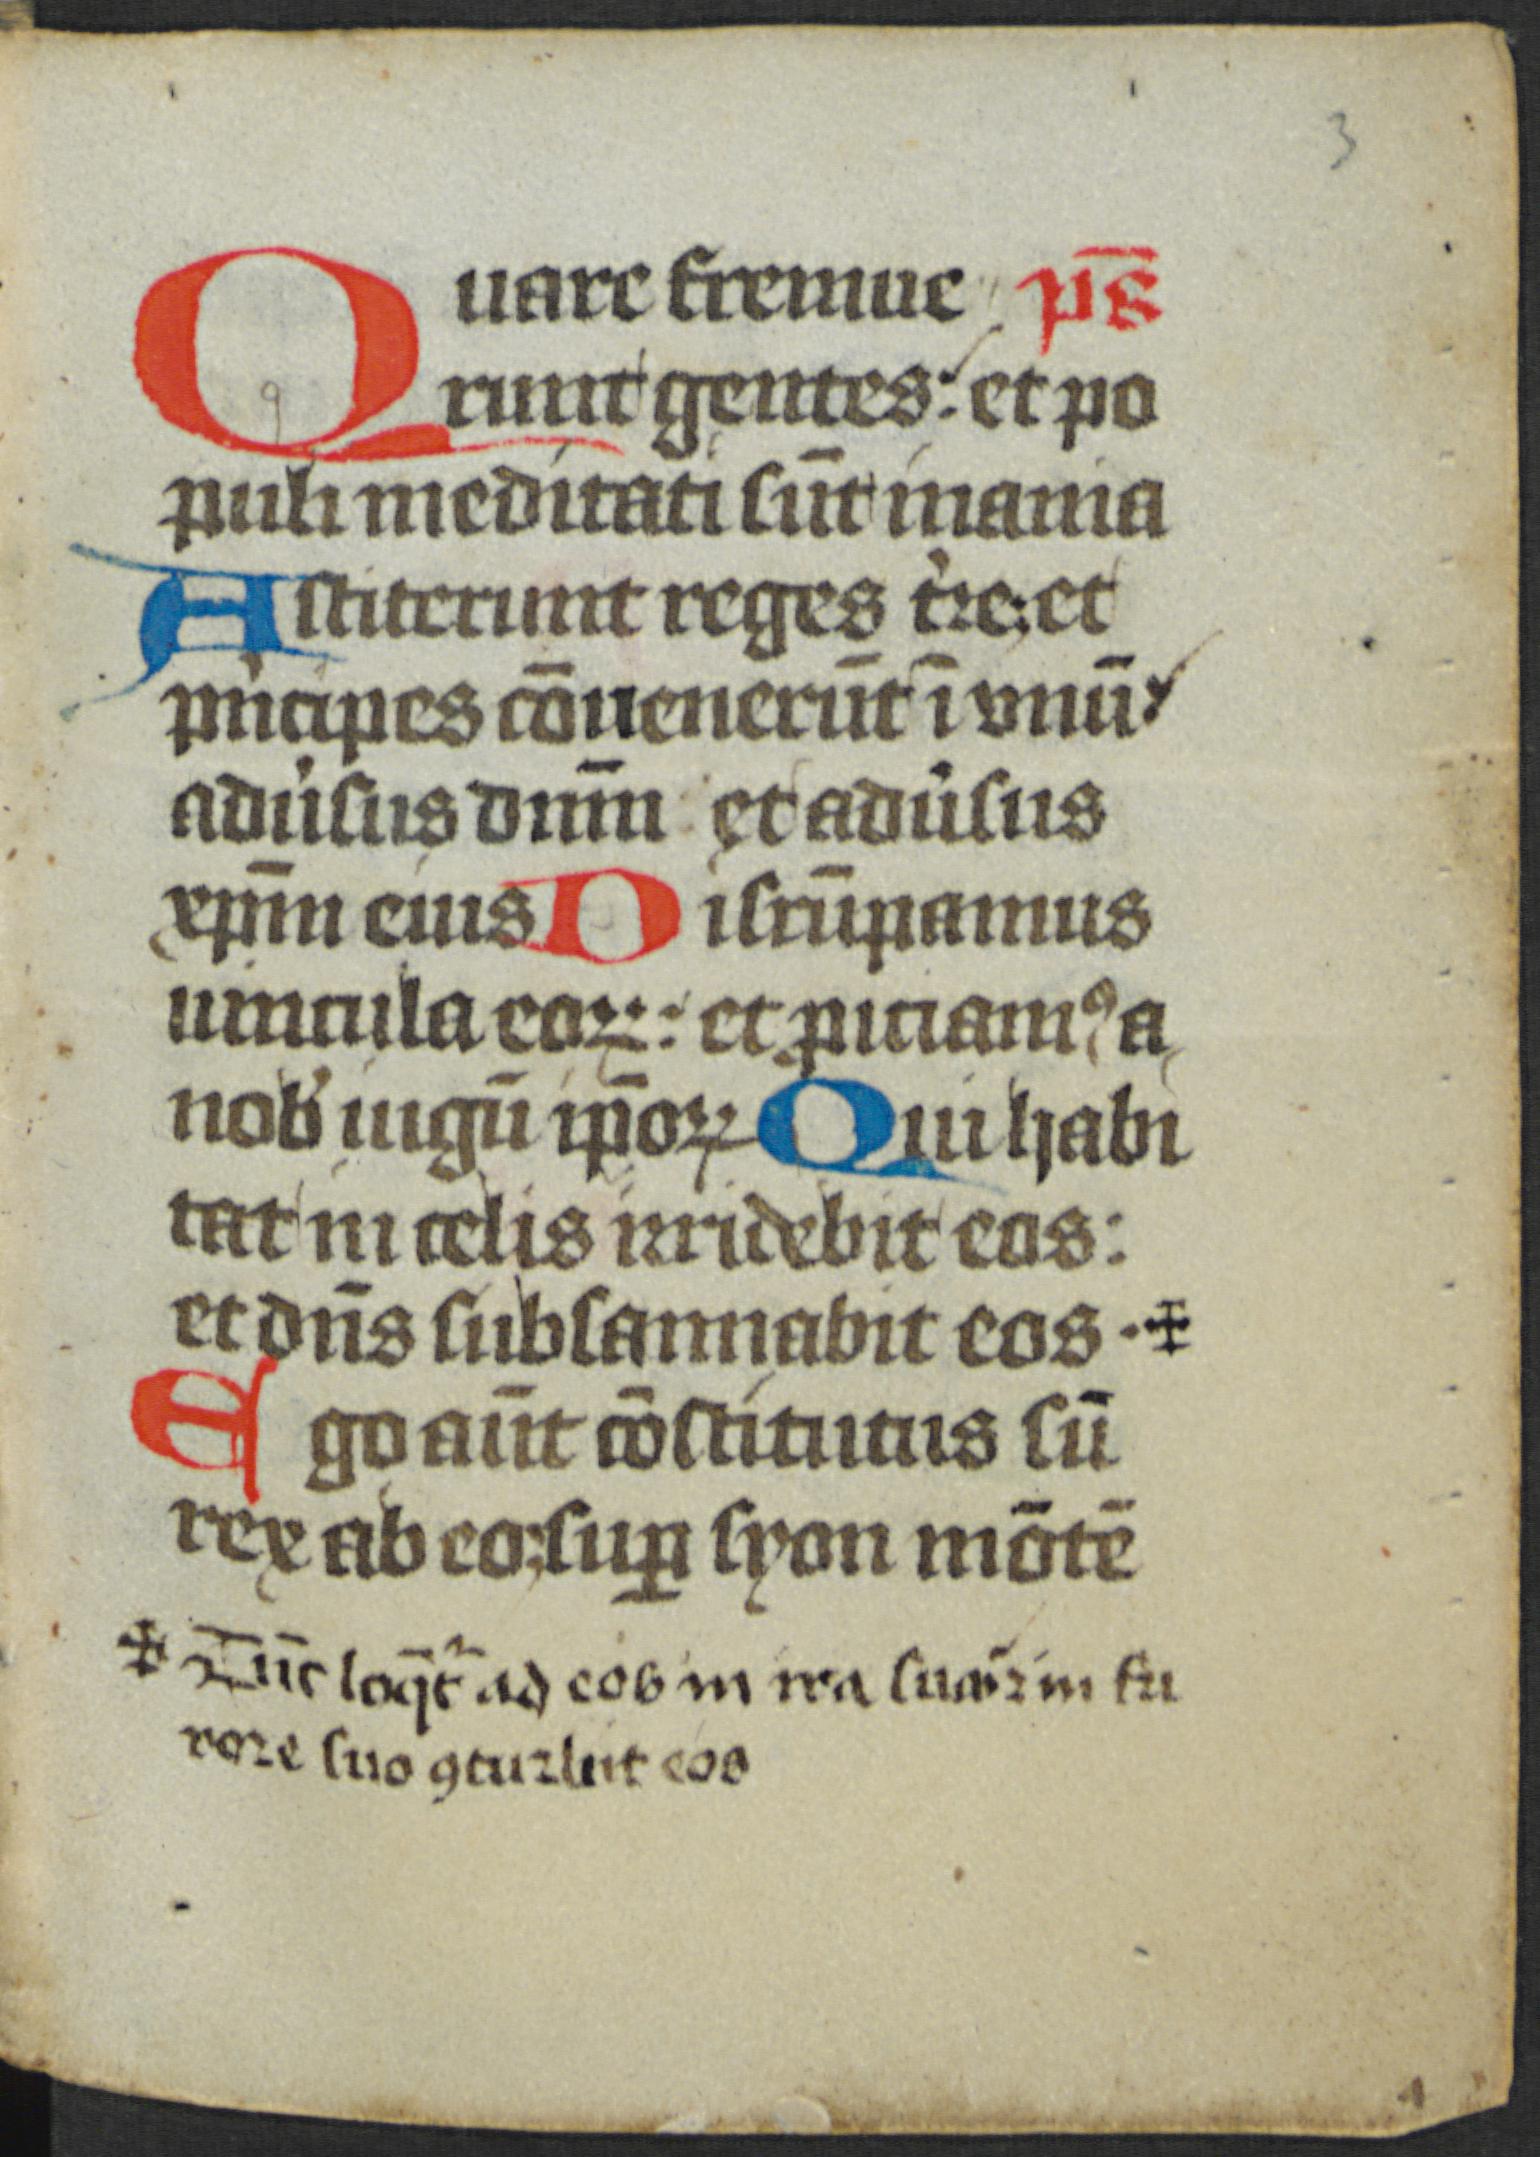 3
Quare fremue p̄s
runt gentes: et po
puli meditati sūt inania
Astiterunt reges t̾re: et
pͥncipes cōuenerūt ī vnū:
adu̾sus dnm̄ et adu̾sus
xpm̄ eius Disrūpamus
uincula eoꝝ: et ꝓiciamꝰ a
nob̾ iugū ip̄oꝝ Qui habi
tat in celis irridebit eos:
et dn̄s subsannabit eos · ✠
Ego aūt cōstitutus sū
rex ab eo: suꝑ syon mōtē
✠ Tūc loq̄t᷑ ad eos in ira sua ⁊ in fu
rore suo ꝯturbīt eos